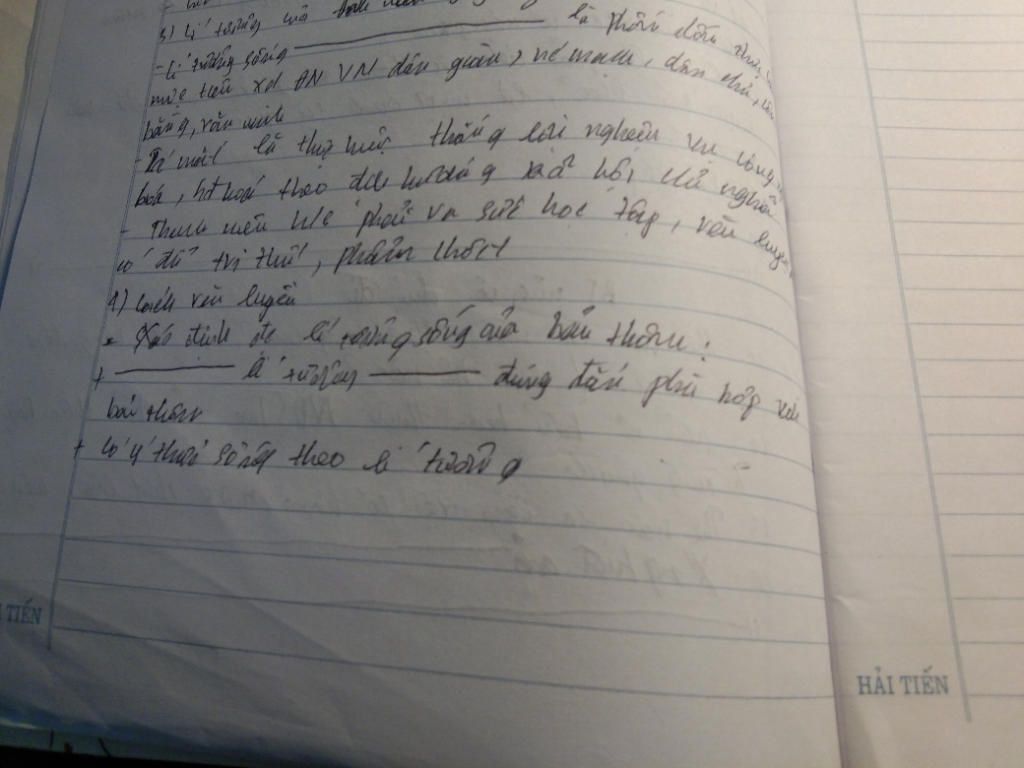 3) Lí tưởng của thanh niên
- Lí tưởng sống ——— là phấn đấu
mục tiêu XD ĐN VN dân giàu, nc mạnh, dân chủ,
bằng, văn minh
là thực hiện thắng lợi nghiệm vụ công
hóa, hđ hoá theo định hướng xã hội chủ nghĩa
- Thanh niên học tập, rèn luyện
có đủ tri thức, phẩm chất
4) Cách rèn luyện
Xác định đc lí tưởng sống của bản thân:
+ ——— lí tưởng ——— đúng đắn phù hợp với
bản thân
+ có ý thức sống theo lí tưởng
TIẾN
HẢI TIẾN